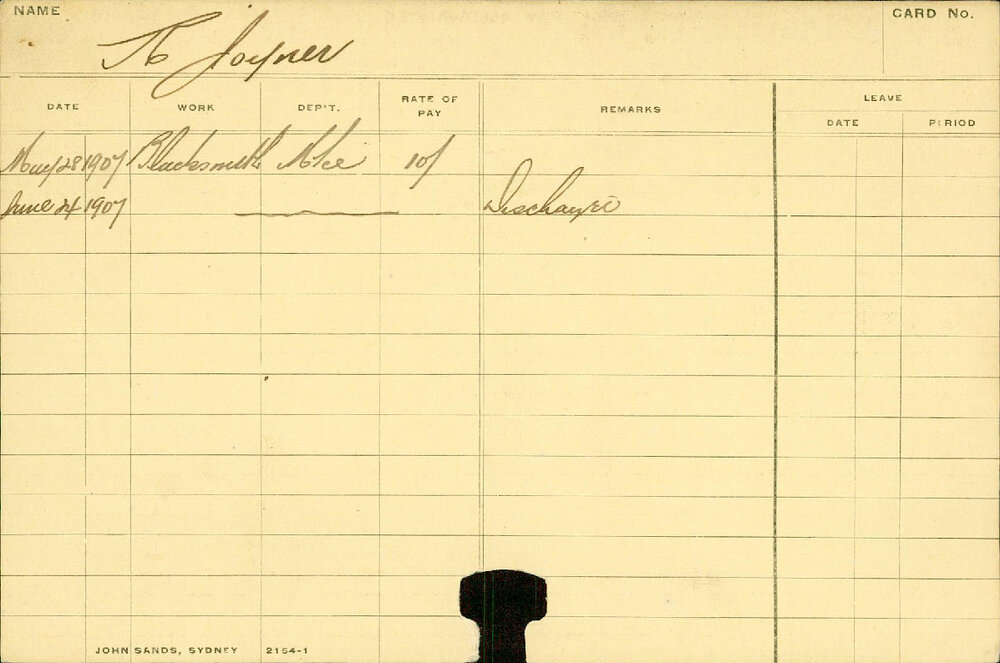 NAME
CARD No.
Joyner
DATE WORK DEP'T. RATE OF PAY REMARKS LEAVE
DATE PERIOD
May 28 1907 Blacksmith 10/
June 24 1907 Discharged
JOHN SANDS, SYDNEY 2154-1